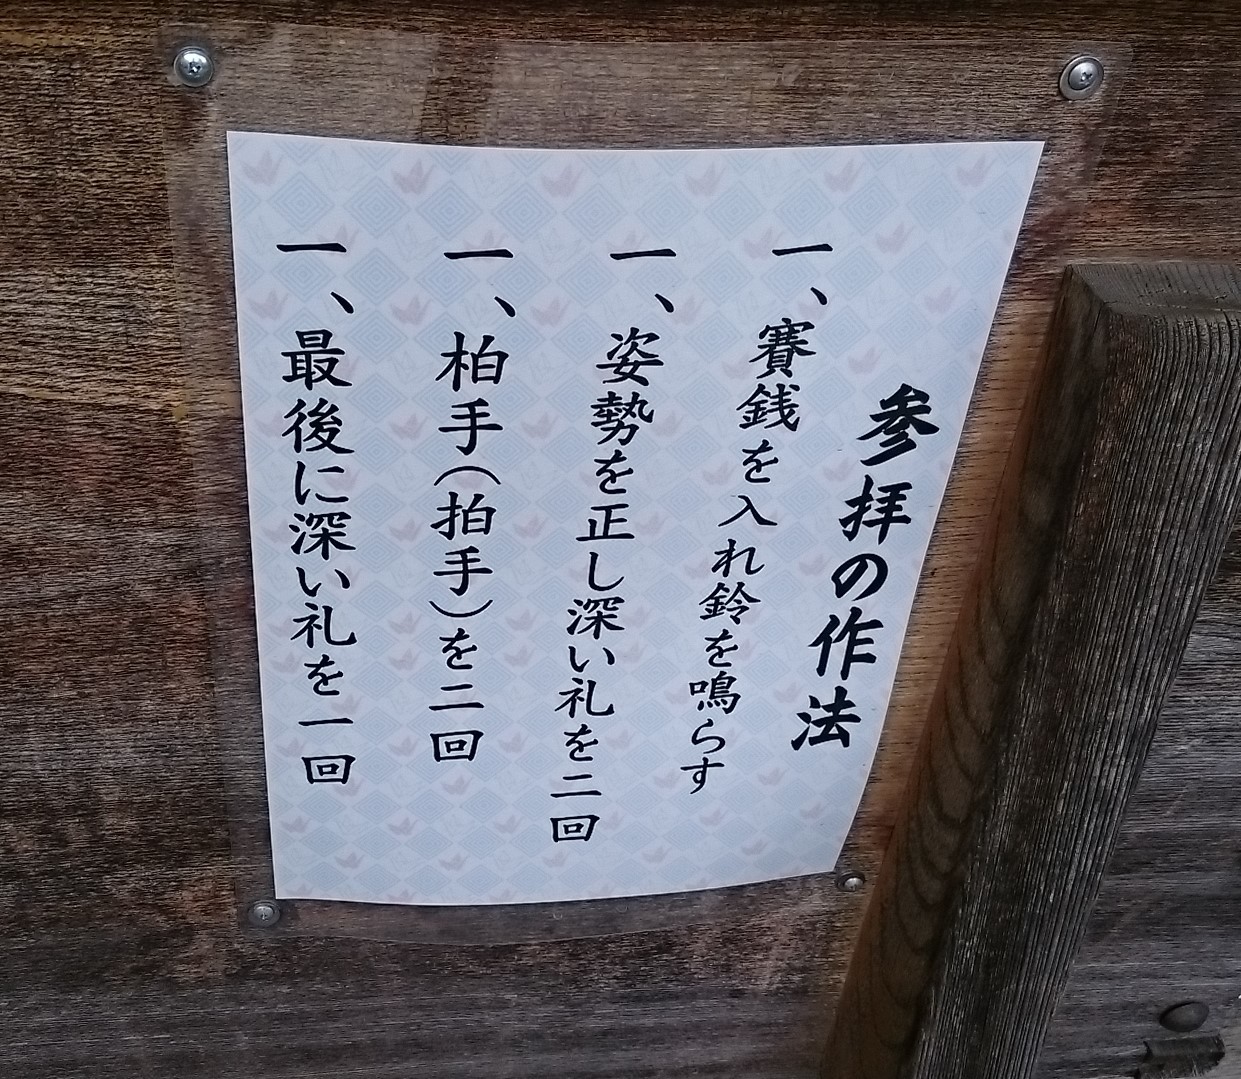 参拝の作法
一、賽銭を入れ鈴を鳴らす
一、姿勢を正し深い礼を二回
一、柏手(拍手)を二回
一、最後に深い礼を一回